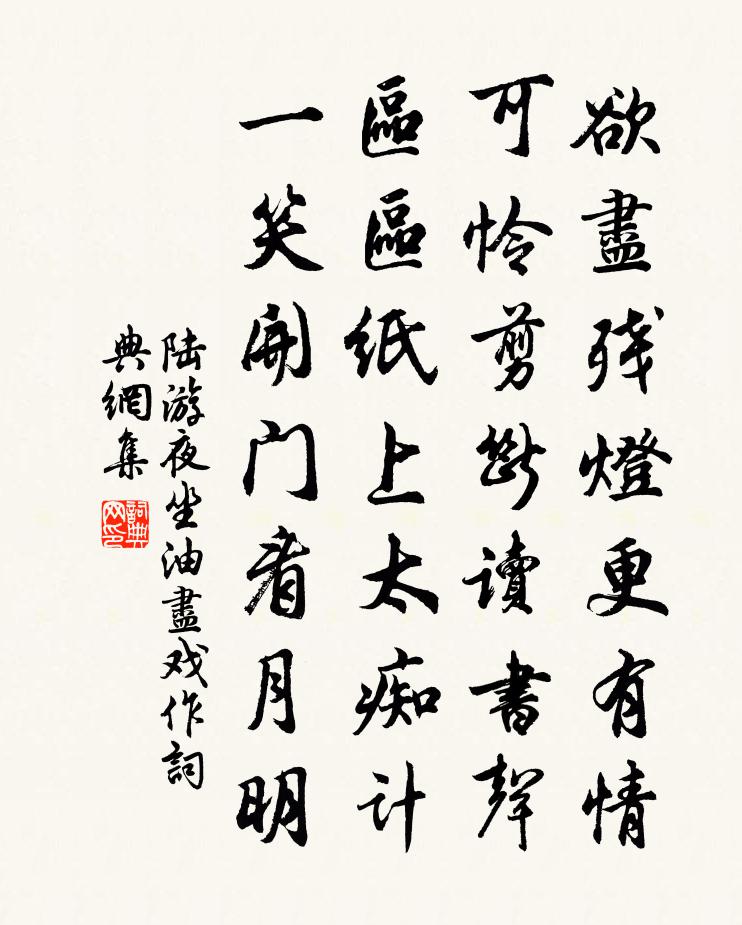 欲盡残燈更有情
可怜剪斷讀書聲
區區紙上太痴计
一笑開门看月明
陆游夜坐油盡戏作詞
典網集
詞典网印